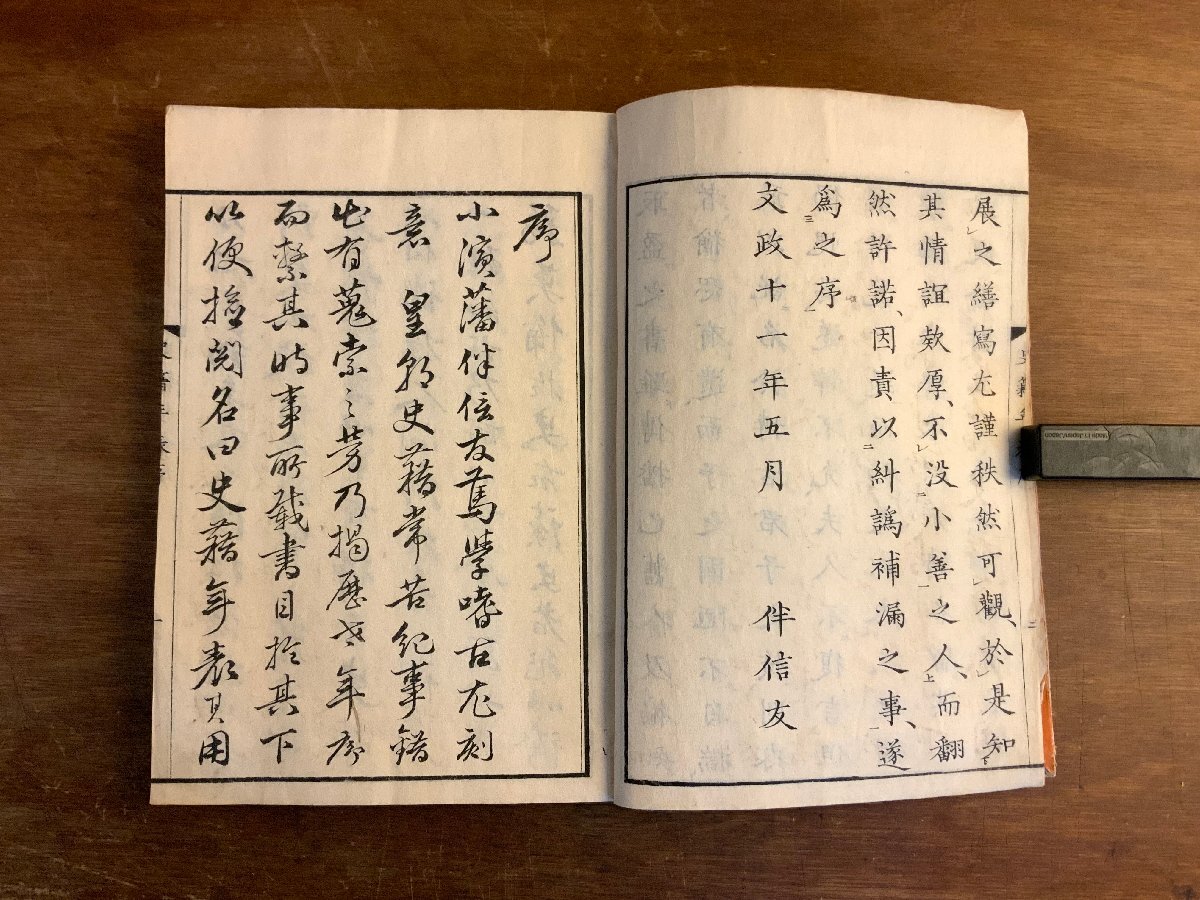 展之繕寫尤謹秩然可觀、於是知
其情誼欸厚、不没小善之人、而翻
然許諾、因責以糾譌補漏之事、遂
爲之序
文政十一年五月　伴信友
序
小濱藩伴信友篤學嗜古尤刻
意　皇朝史籍常苦紀事錯
出有蒐索之労乃揭歷世年序
而繫其時事所載書目於其下
以便撿閲名曰史籍年表其用
Made in Japan/Japon